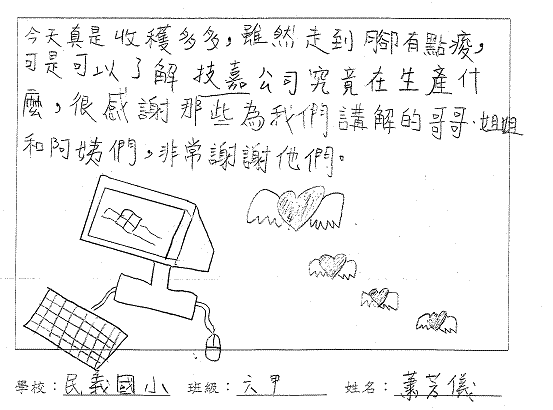 今天真是收穫多多，雖然走到腳有點痠，
可是可以了解技嘉公司究竟在生產什
麼，很感謝那些為我們講解的哥哥、姐姐
和阿姨們，非常謝謝他們。
學校：民義國小 班級：六甲 姓名：蕭芳儀